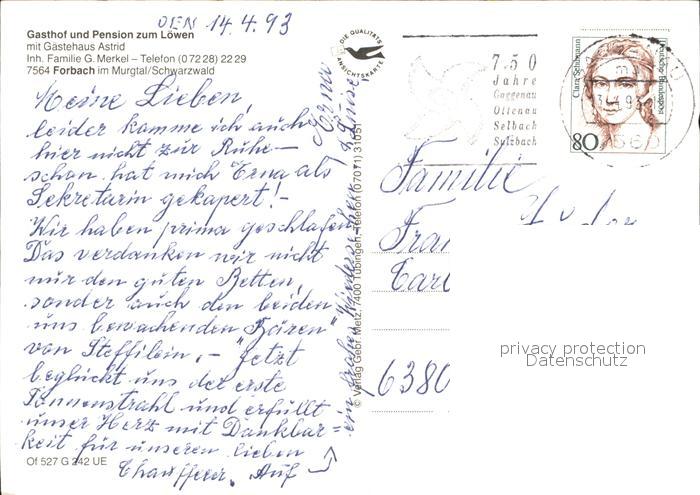 DEN 14.4.93
Gasthof und Pension zum Löwen
mit Gästehaus Astrid
Inh. Familie G. Merkel – Telefon (0 72 28) 22 29
7564 Forbach im Murgtal/Schwarzwald
Meine Lieben,
leider komme ich auch
hier nicht zur Ruhe –
schon hat mich Erna als
Sekretärin gekapert! –
Wir haben prima geschlafen
Das verdanken wir nicht
nur den guten Betten,
sonder auch den beiden
uns bewachenden "Bären"
von Steffilein. – Jetzt
beglückt uns der erste
Sonnenstrahl und erfüllt
unser Herz mit Dankbar=
keit für unseren lieben
Chauffeur. Auf
ein frohes Wiedersehen
Erna
Of 527 G 242 UE
DIE QUALITÄTS
ANSICHTSKARTE
© Verlag Gebr. Metz, 7400 Tübingen, Telefon (07071) 31051
750
Jahre
Gaggenau
Ottenau
Selbach
Sulzbach
Clara Schumann
Deutsche Bundespost
80
Familie
6380
privacy protection
Datenschutz